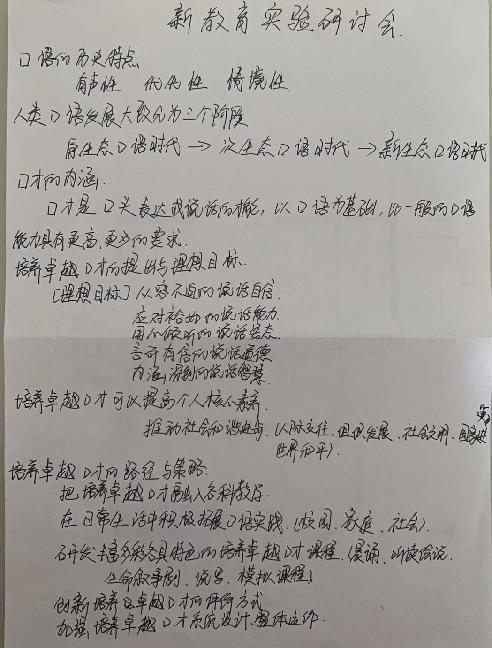 新教育实验研讨会
口语的历史特点
有声性 时代性 情境性
人类口语发展大致分为三个阶段
原生态口语时代→次生态口语时代→新生态口语时代
口才的内涵
口才是口头表达或说话的才能，以口语为基础，比一般的口语
能力具有更高、更多的要求.
培养卓越口才的提出与理想目标.
[理想目标]从容不迫的说话自信.
应对裕如的说话能力.
用心倾听的说话姿态.
言而有信的说话道德
内涵深刻的说话智慧.
培养卓越口才可以提高个人核心素养.
推动社会和谐进步.(人际交往、组织发展、社会文明、
世界和平).
培养卓越口才的路径与策略.
把培养卓越口才融入各科教学.
在日常生活中积极拓展口语实践.(校园、家庭、社会).
研发丰富多彩各具特色的培养卓越口才课程.(晨诵、听读绘说、
生命叙事剧、说写、模拟课程)
创新培养卓越口才的评价方式.
加强培养卓越口才系统设计、整体运作.